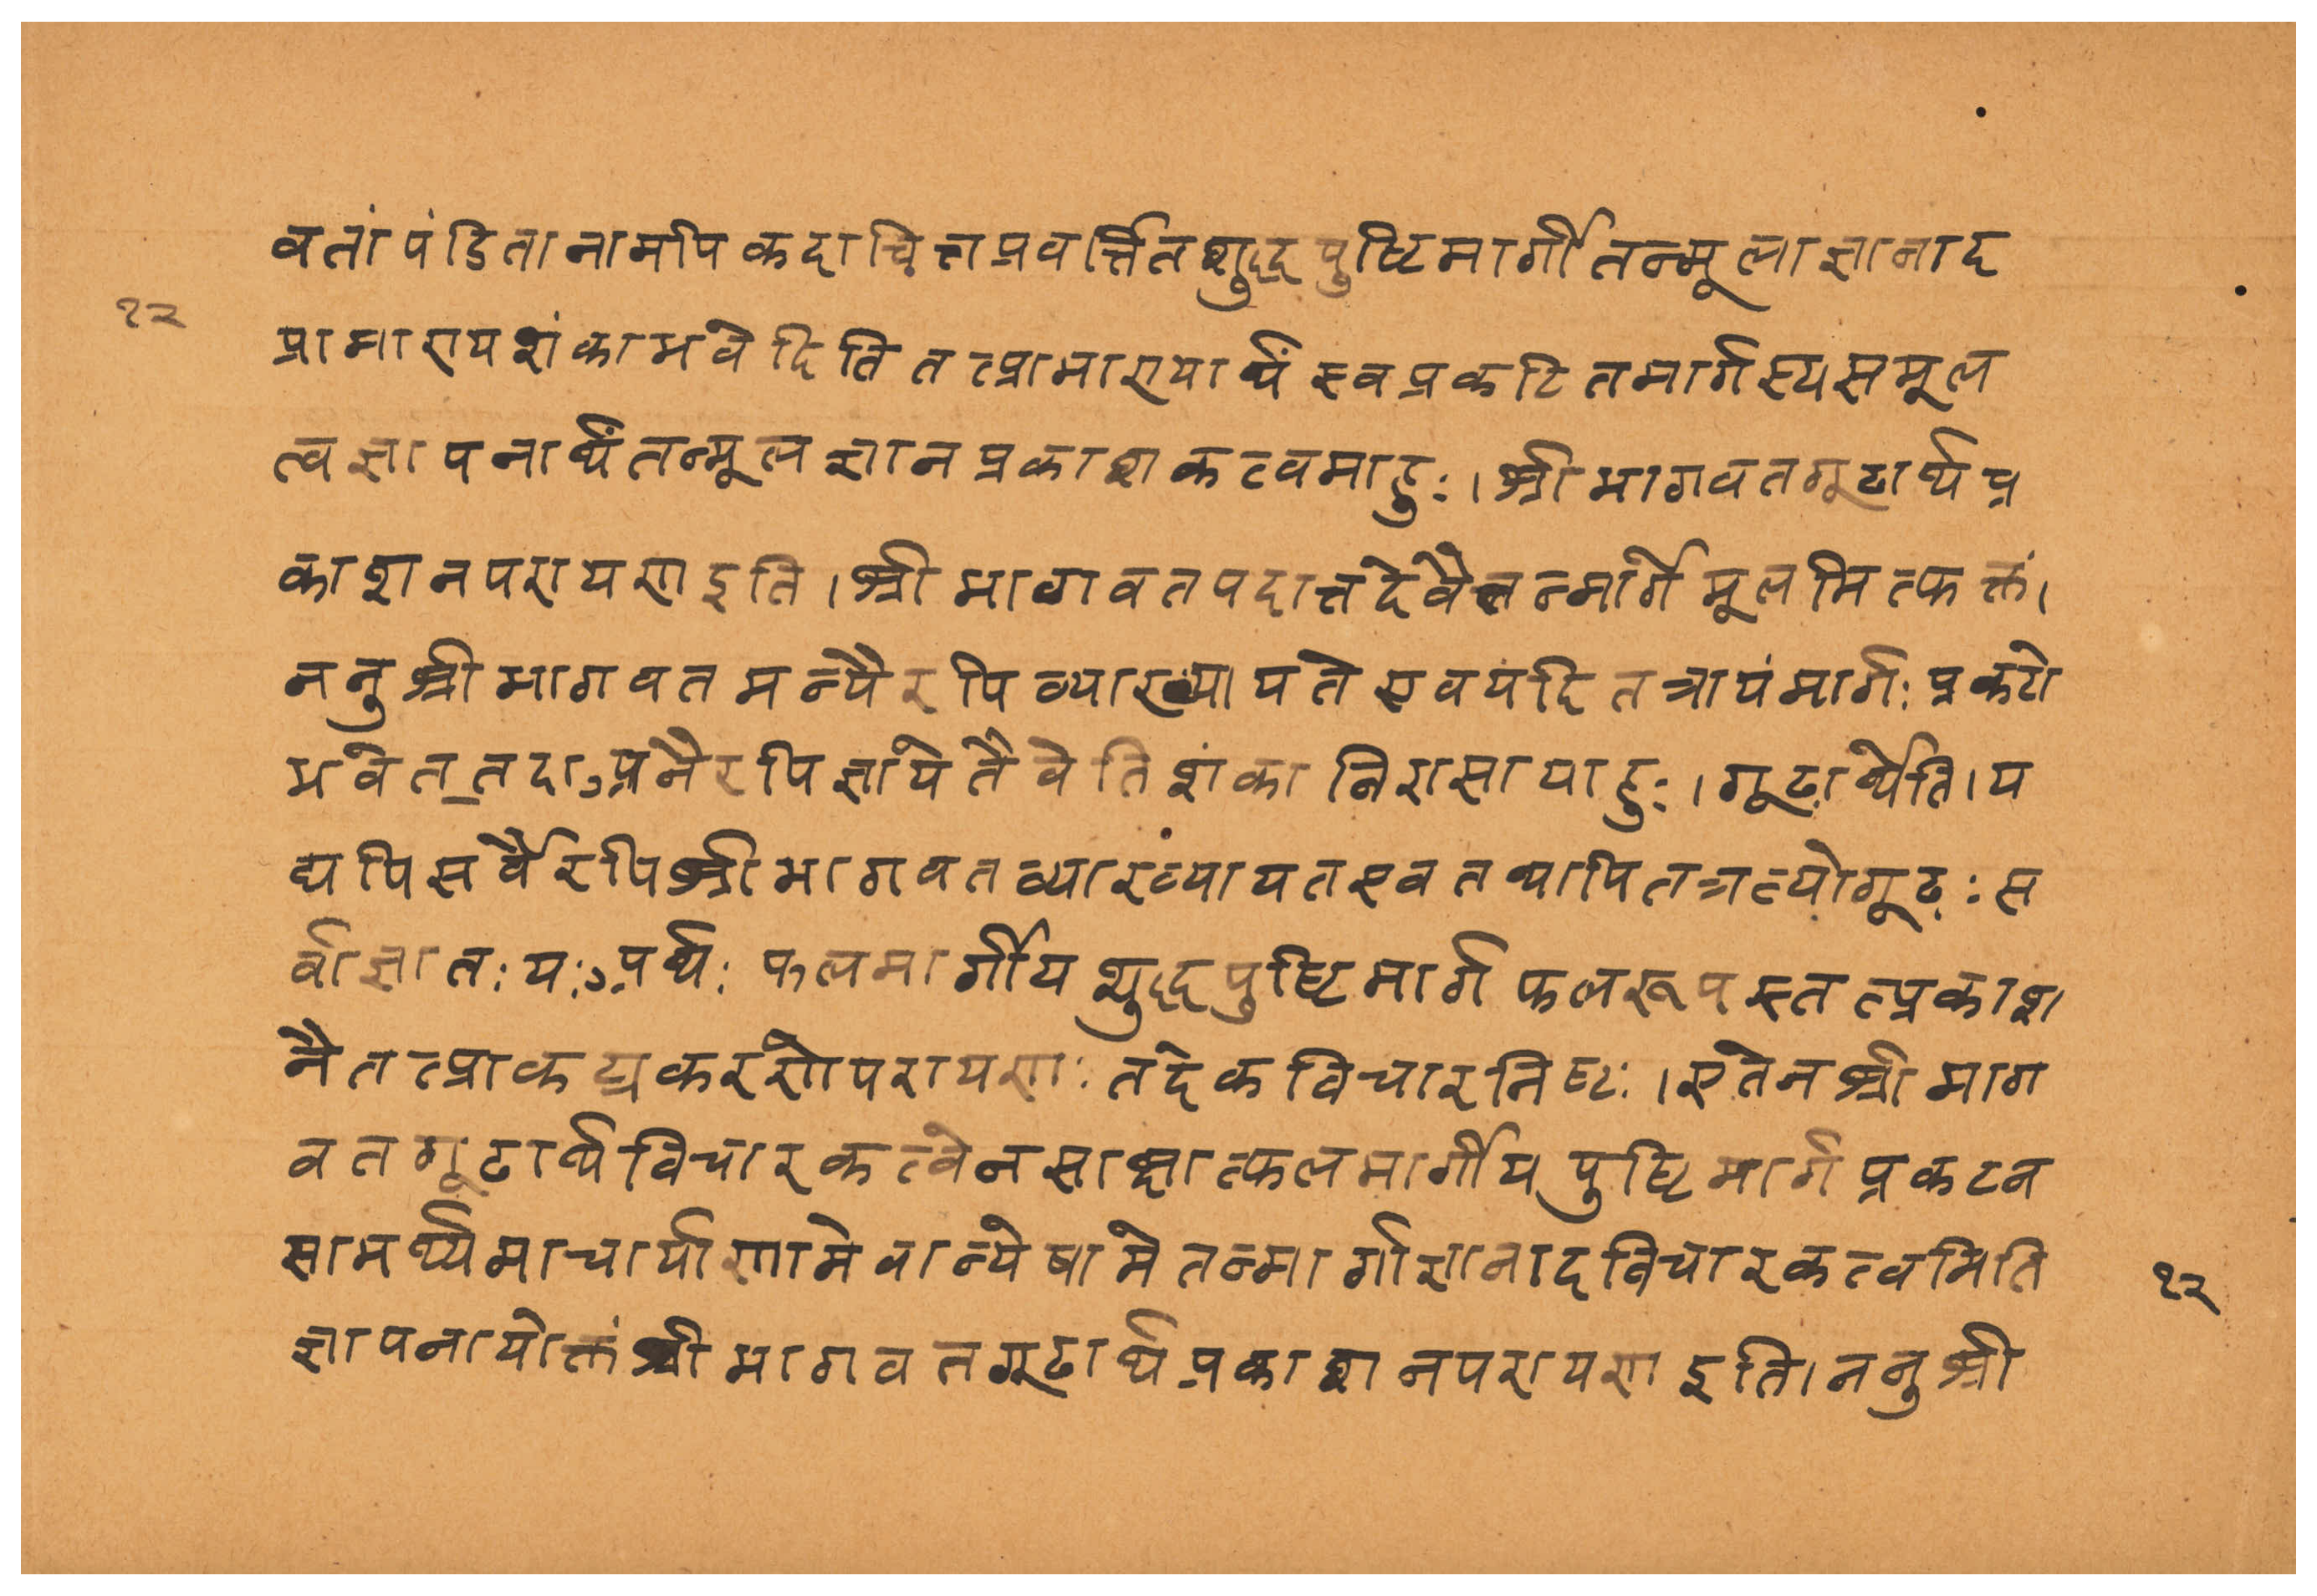 वतां पंडितानामपि कदाचित्तप्रवर्त्तितशुद्धपुष्टिमार्गेतन्मूलाज्ञानाद
१२
प्रामाण्यशंकाभवेदिति तत्प्रामाण्यार्थं स्वप्रकटितमार्गस्यसमूल
त्वज्ञापनार्थंतन्मूलज्ञानप्रकाशकत्वमाहुः।श्रीभागवतगूढार्थप्र
काशनपरायण इति।श्रीभागवतपदात्तदेवैतन्मार्गेमूलमित्फक्तं।
ननुश्रीभागवतमन्यैरपिव्याख्यायते एवयंदितत्रायंमार्गः प्रकटो
भवेत् तदाऽप्रनैरपिज्ञायेतैवेतिशंकानिरासायाहुः।गूढार्थेति।य
द्यपिसर्वैरपिश्रीभागवतव्याख्यायतएवतथापितत्रत्योगूढः स
र्वाज्ञातः यःऽपर्थः फलमार्गीयशुद्धपुष्टिमार्गफलरूपस्तत्प्रकाश
नैतत्प्राकट्यकरणेपरायणः तदेकविचारनिष्टः।एतेनश्रीभाग
वतगूढार्थविचारकत्वेनसाक्षात्फलमार्गीयपुष्टिमार्गप्रकटन
सामर्थ्यमाचार्याणामेवान्येषामेतन्मार्गाज्ञानादविचारकत्वमिति
१२
ज्ञापनायोक्तं श्रीभागवतगूढार्थप्रकाशनपरायण इति।ननुश्री